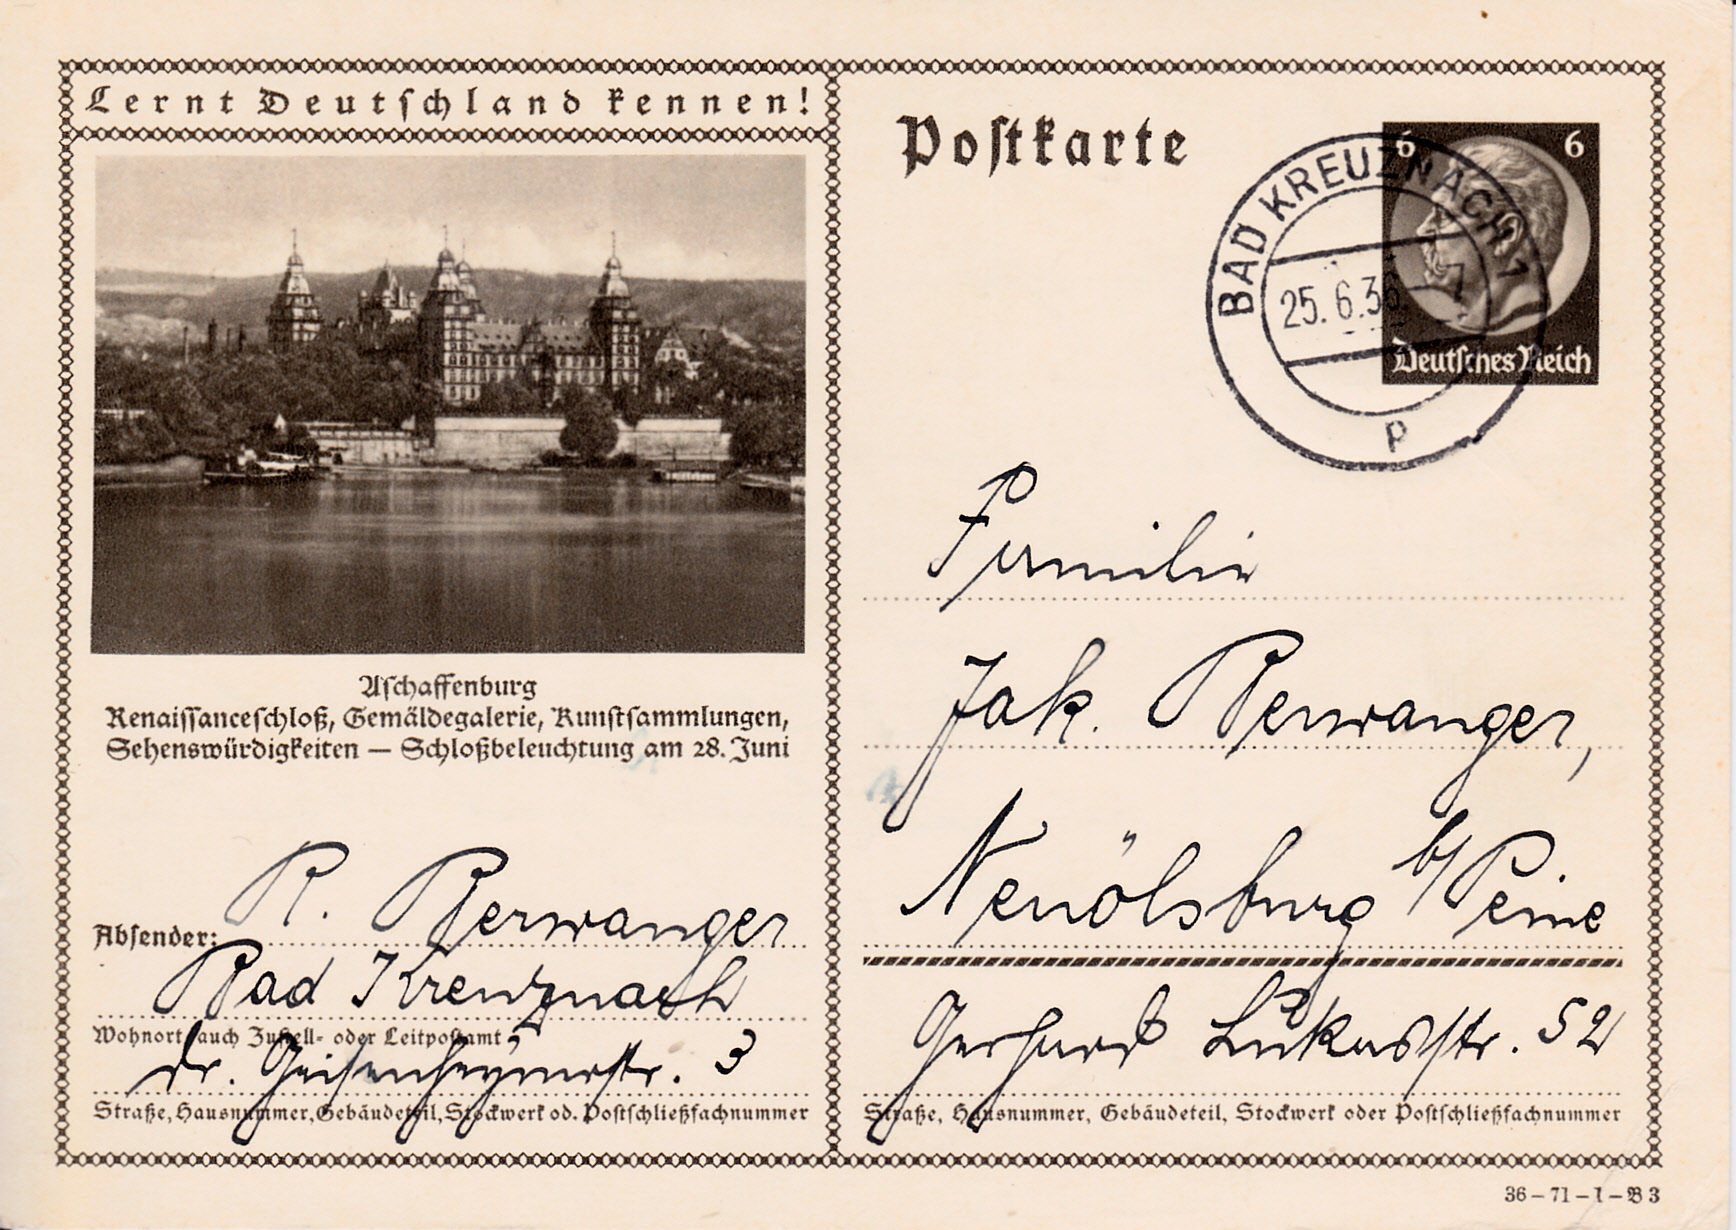 Lernt Deutschland kennen!
Aschaffenburg
Renaissanceschloß, Gemäldegalerie, Kunstsammlungen,
Sehenswürdigkeiten — Schloßbeleuchtung am 28. Juni
Absender: R. Berwanger
Bad Kreuznach
Wohnort, auch Zustell- oder Leitpostamt
Dr. Geisenheynerstr. 3
Straße, Hausnummer, Gebäudeteil, Stockwerk od. Postschließfachnummer
Postkarte
6 6
Deutsches Reich
BAD KREUZNACH 1
25.6.36 - 7
p
Familie
Jak. Berwanger,
Neuölsburg b/Peine
Gerhard Lukasstr. 52
Straße, Hausnummer, Gebäudeteil, Stockwerk oder Postschließfachnummer
36 – 71 – 1 – B 3